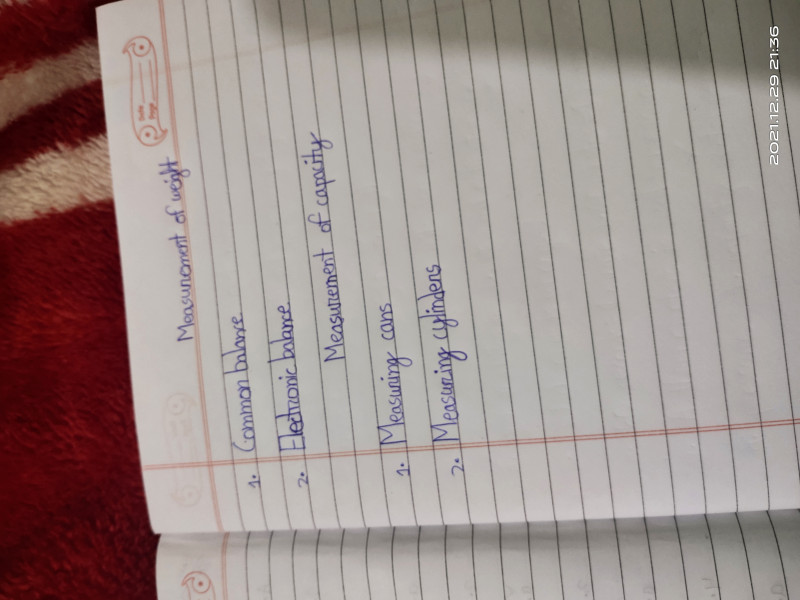 Date
Page
Measurement of weight
1. Common balance
2. Electronic balance
Measurement of capacity
1. Measuring cans
2. Measuring cylinders
2021.12.29 21:36